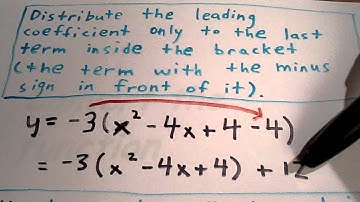 Distribute the leading
coefficient only to the last
term inside the bracket
(the term with the minus
sign in front of it).
y = -3(x² - 4x + 4 - 4)
= -3(x² - 4x + 4) + 12